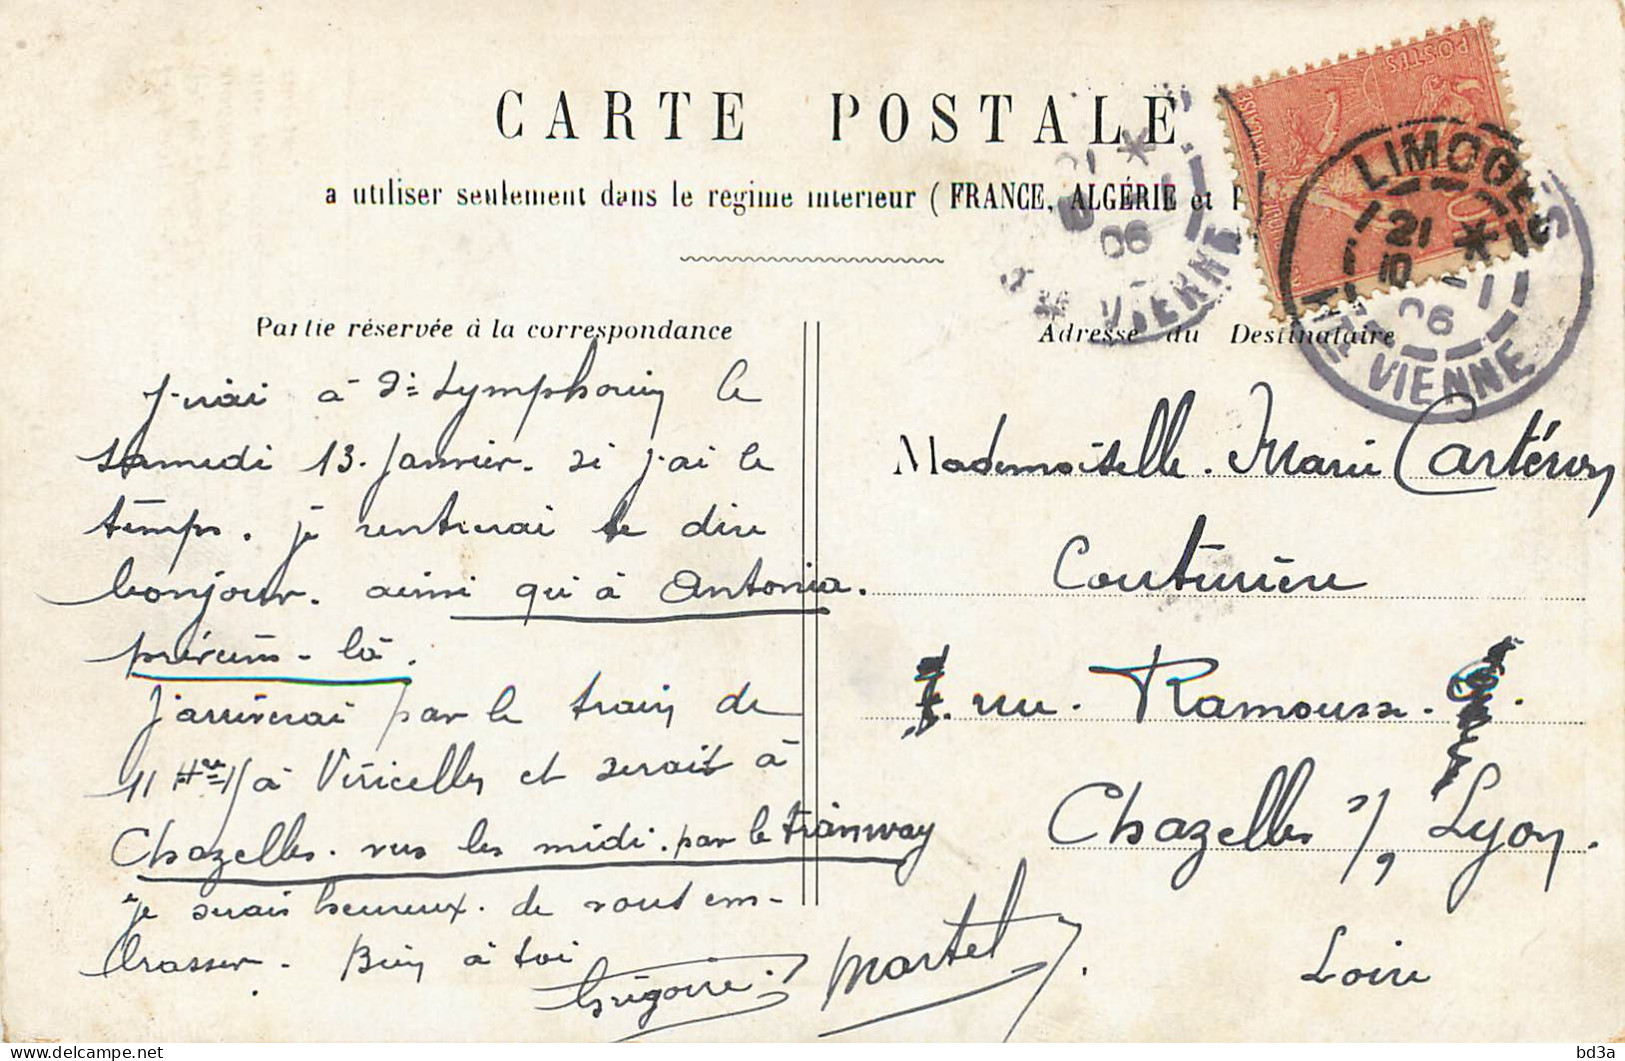 CARTE POSTALE
a utiliser seulement dans le regime interieur (FRANCE, ALGÉRIE et
Partie réservée à la correspondance
J'irai à St Symphorien le
samedi 13. Janvier. si j'ai le
temps. je rentrerai te dire
bonjour. ainsi qui à Antonia.
préviens-là.
J'arriverai par le train de
11 Hres à Viricelles et serait à
Chazelles. vers les midi. par le tramway
je serais heureux. de vout em-
brasser. Bien à toi
Grégoire Martel
Adresse du Destinataire
Mademoiselle. Marie Cartéron
Couturière
rue. Ramousse.
Chazelles s/ Lyon.
Loire
POSTES
LIMOGES
21 * 10
06
HTE VIENNE
21 *
06
VIENNE
bd3a